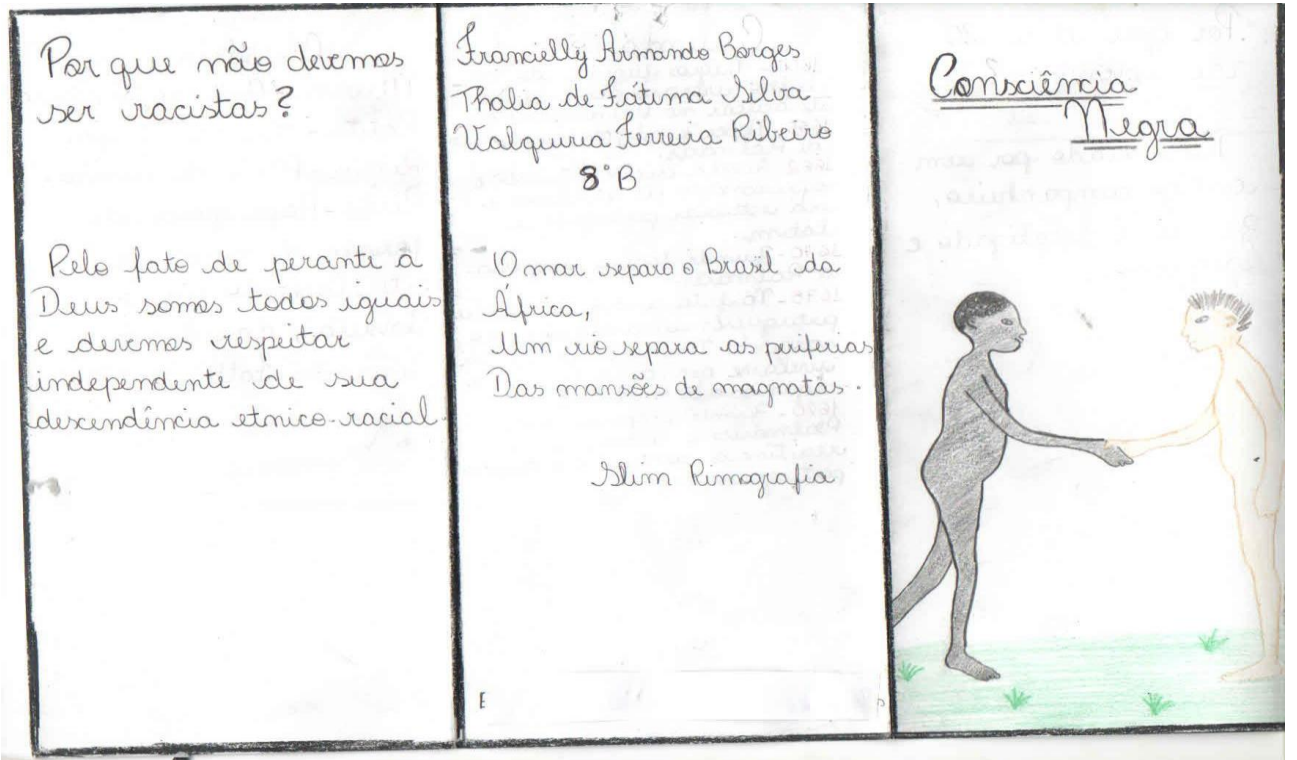 Por que não devemos
ser racistas?
Pelo fato de perante à
Deus somos todos iguais
e devemos respeitar
independente de sua
descendência etnico-racial.
Francielly Armando Borges
Thalia de Fátima Silva
Valquiria Ferreira Ribeiro
8°B
O mar separa o Brasil da
África,
Um rio separa as priferias
Das mansões de magnatas.
Slim Rimografia
E
Consciência
Negra